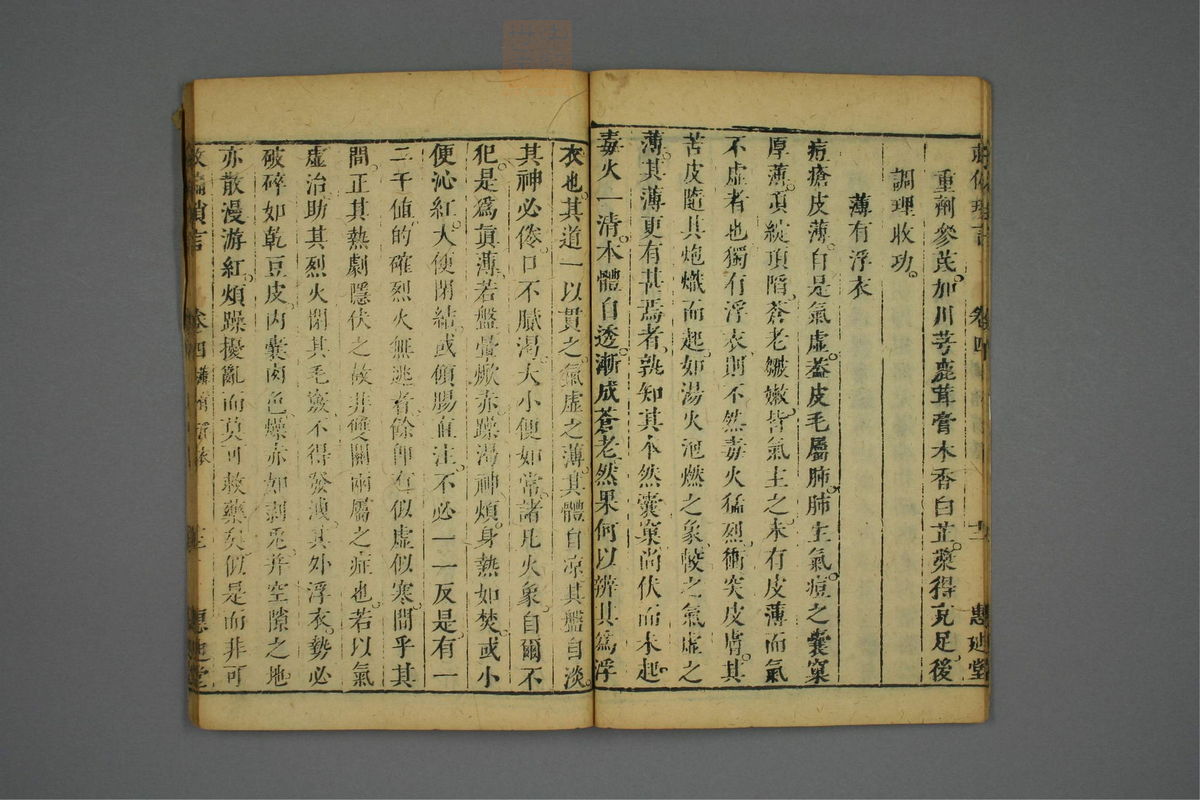 重劑參芪。加川芎鹿茸膏木香白芷。藥得充足。後
調理收功。
薄有浮衣
痘瘡皮薄。自是氣虛。蓋皮毛屬肺。肺主氣。痘之囊窠
厚薄。項綻頂陷。蒼老皺嫩。皆氣主之。未有皮薄而氣
不虛者也。獨有浮衣。則不然。毒火猛烈。衝突皮膚。其
苦皮隨其炮熾而起。如湯火泡燃之象。較之氣虛之
薄。其薄更有甚焉者。孰知其本然囊窠尚伏而未起。
毒火一清。本體自透。漸成蒼老。然果何以辨其為浮
衣也。其道一以貫之。氣虛之薄。其體自凉。其盤自淡。
其神必倦。口不膩渴。大小便如常。諸凡火象。自爾不
犯。是為真薄。若盤暈焮赤。躁渴神煩。身熱如焚。或小
便沁紅。大便閉結。或傾腸直注。不必一一反是。有一
二干值。的確烈火無逃者。餘即有似虛似寒。間乎其
間。正其熱劇隱伏之故。非雙關兩屬之症也。若以氣
虛治。助其烈火。閉其毛竅。不得發洩。其外浮衣。勢必
破碎如乾豆皮。內囊肉色。燥赤如剥兎。并空隙之地。
亦散漫游紅。煩躁擾亂。而莫可救藥矣。似是而非。可
卷四
惠廸堂